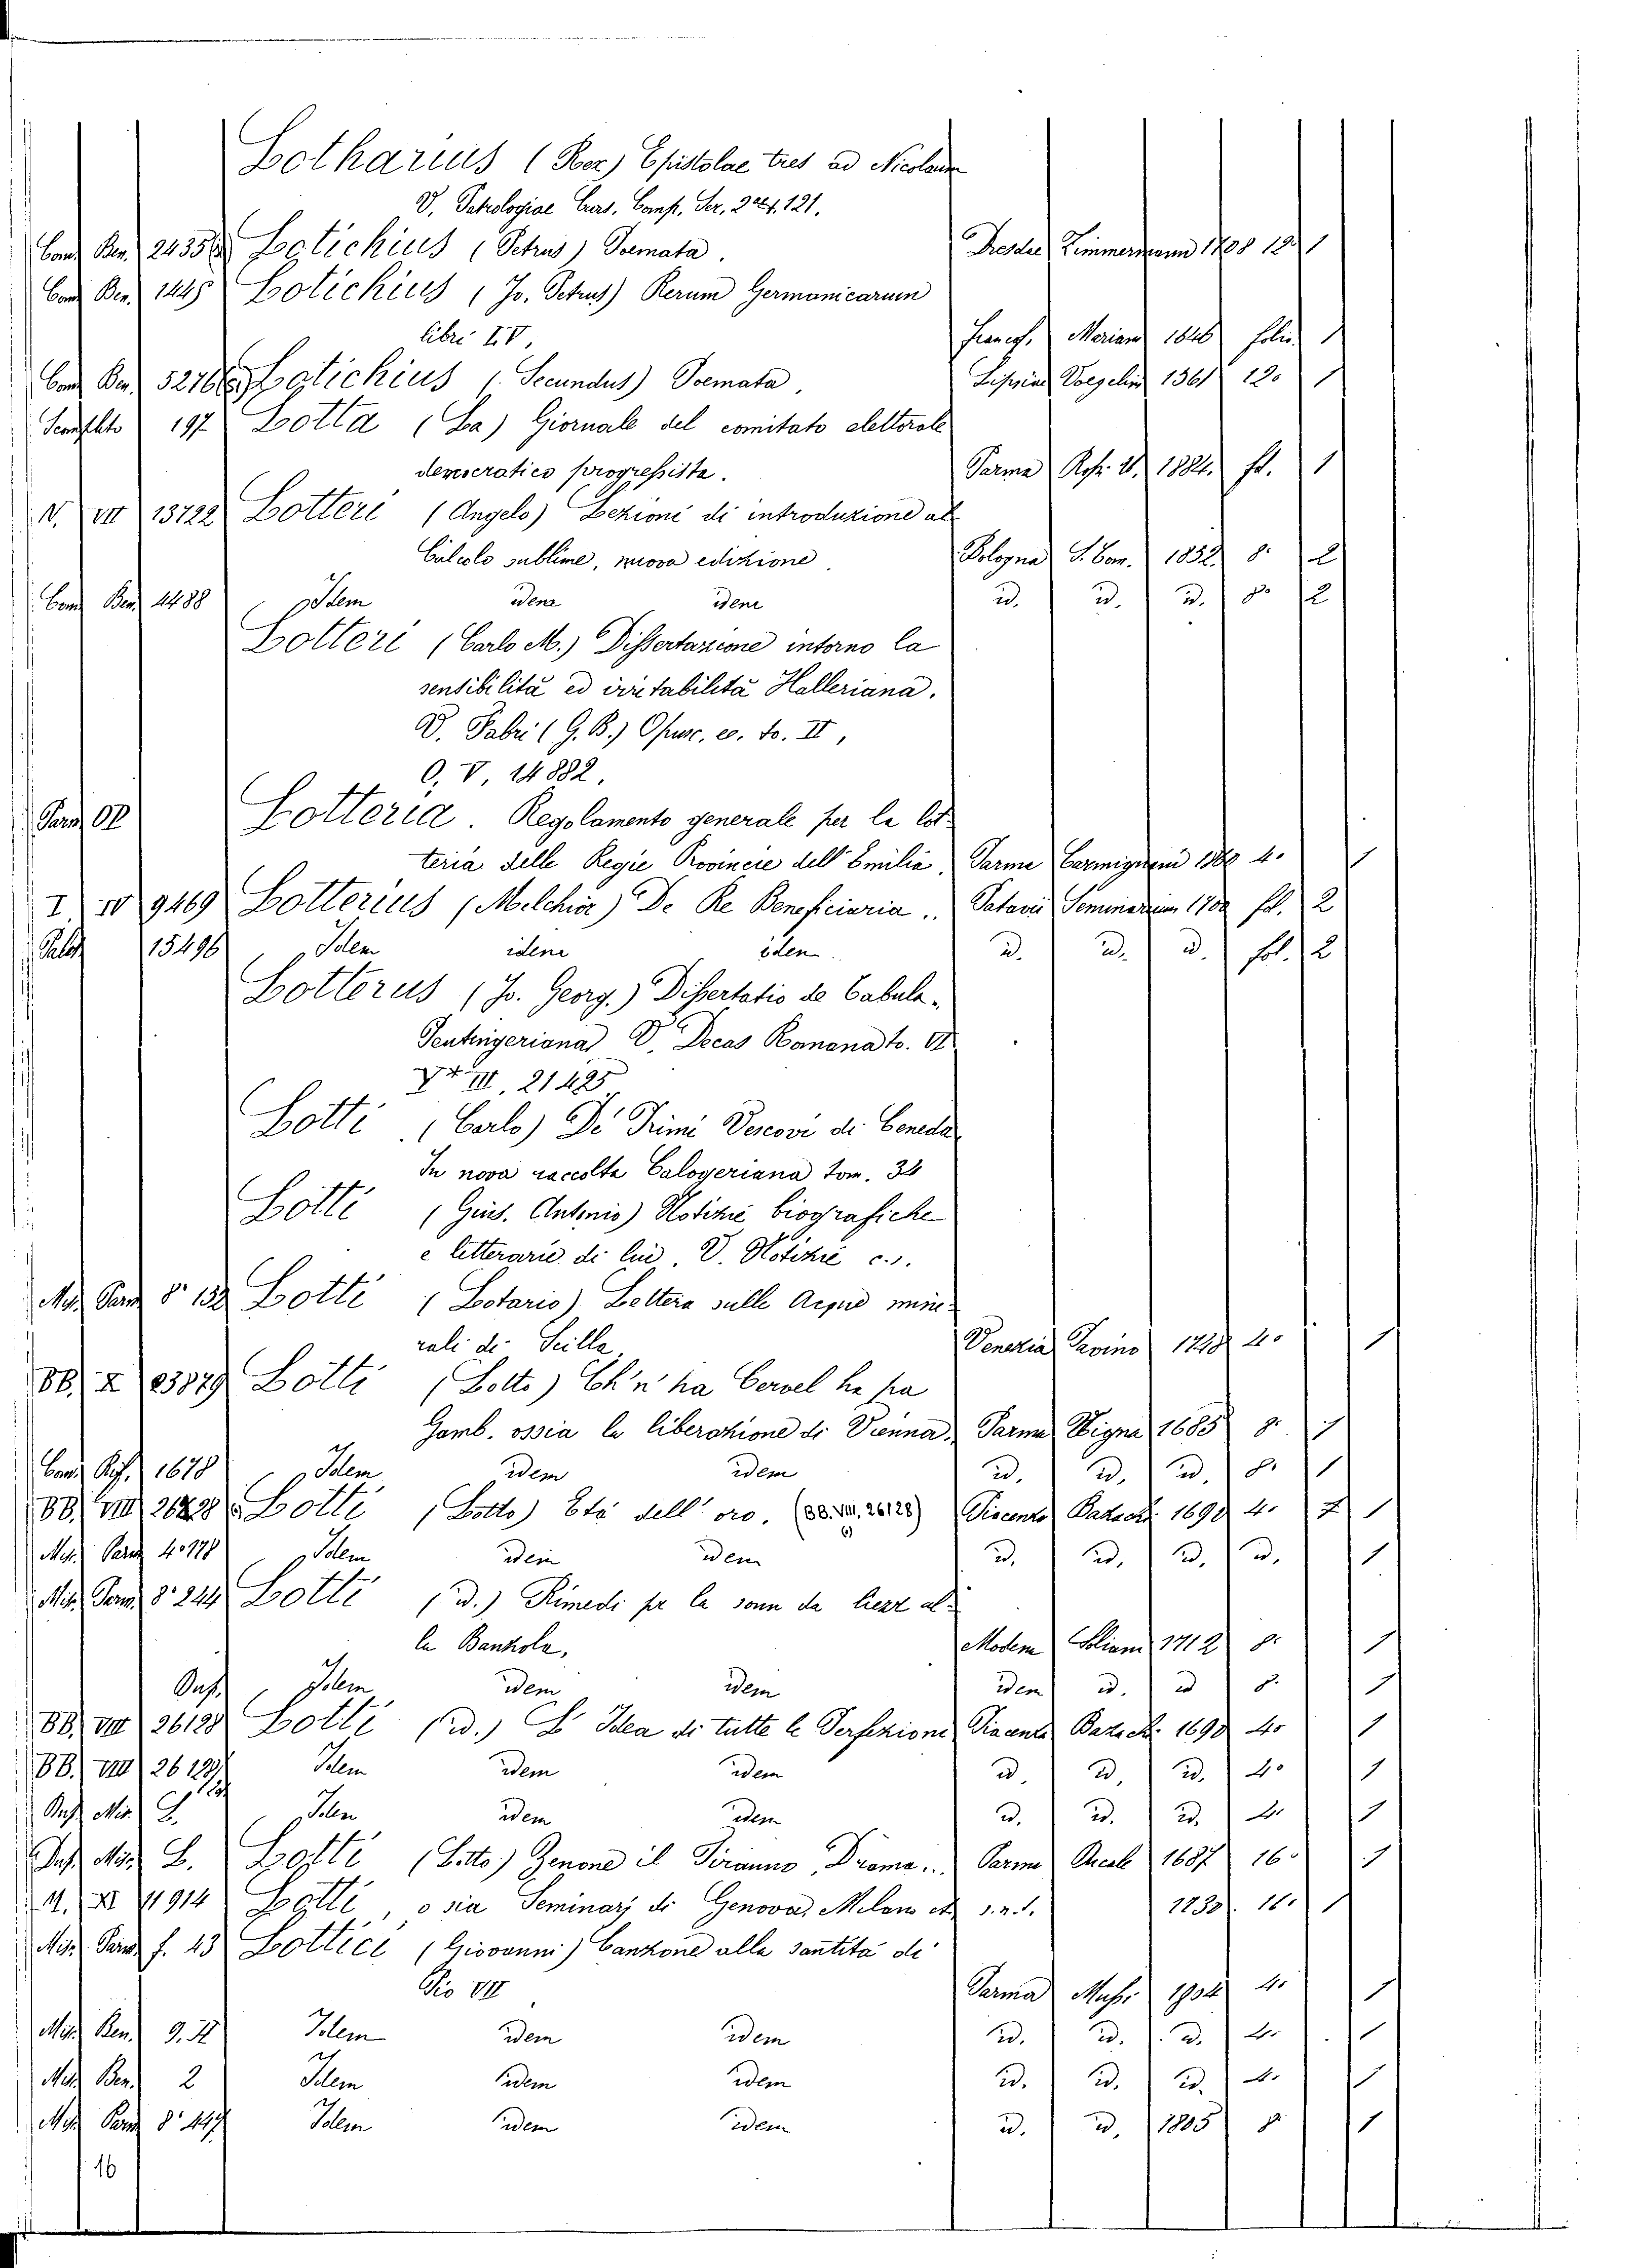 Lotharius (Rex) Epistolae tres ad Nicolaum
V. Patrologiae Curs. Comp. Ser. 2ª t. 121.
Cons Ben. 24356 Lotichius (Petrus) Poemata. Dresdae Zimmermann 1708 12° 1
Cons Ben. 1445 Lotichius (Jo. Petrus) Rerum Germanicarum
libri IV, Francf. Merian 1646 folio 1
Cons Ben. 52786 Lotichius (Secundus) Poemata, Lipsiae Voegelin 1561 12° 1
197 Lotta (La) Giornale del comitato elettorale
democratico progressista. Parma 1882. fol. 1
N. VII 13722 Lotteri (Angelo) Lezioni di introduzione al
Calcolo sublime, nuova edizione. Bologna 1832 8° 2
Cons Ben. 4488 Idem idem idem id. id. id. 8° 2
Lotteri (Carlo M.) Dissertazione intorno la
sensibilità ed irritabilità Halleriana.
V. Fabri (G. B.) Opusc. ec. to. II,
O. V. 14882.
Lotteria. Regolamento generale per la lot-
teria delle Regie Provincie dell'Emilia, Parma Carmignani 4° 1
I IV 9469 Lotterius (Melchior) De Re Beneficiaria.. Patavii Seminarium 1700 fol. 2
Palat 15496 Idem idem idem. id. id. id. fol. 2
Lotterus (Jo. Georg.) Dissertatio de Tabula
Peutingeriana V. Decas Romana to. VI
III, 21425
Lotti (Carlo) De' Primi Vescovi di Ceneda
In nova raccolta Calogeriana tom. 34
Lotti (Gius. Antonio) Notizie biografiche
e letterarie di lui, V. Notizie c..
Mis. Parm 8° 132 Lotti (Lotario) Lettera sulle Acque mine-
rali di Scilla, Venezia Pavino 4° 1
BB. X 23879 Lotti (Lotto) Ch'n' ha Cervel he ha
Gamb. ossia la liberazione di Vienna, Parma Vigna 1685 8° 1
1678 Idem idem idem id. id. id. 8° 1
BB. VIII 26128 Lotti (Lotto) Età dell'oro. (BB. VIII. 26128) Piacenza Bazachi 1690 4° 1
Mis. Parm 4° 178 Idem idem idem id. id. id. id. 1
Mis. Parm. 8° 244 Lotti (id.) Rimedi pr la sonn da liezr al-
la Banzola, Modena Soliani 1712 8° 1
Idem idem idem idem id. id 8° 1
BB. VIII 26128 Lotti (id.) L'Idea di tutte le Perfezioni Piacenza Bazachi 1690 4° 1
BB. VIII 26129 Idem idem idem id. id. id. 4° 1
Idem idem idem id. id. id. 4° 1
Lotti (Lotto) Zenone il Tiranno, Drama.. Parma Ducale 1687 16° 1
M. XI 11914 Lotti, o sia Seminarj di Genova, Milano etc. s.n.t. 1730. 16° 1
Mis. Parm f. 43 Lottici (Giovanni) Canzone alla santità di
Pio VII Parma Muss. 1904 4° 1
Mis. Ben. Idem idem idem id. id. id. 4° 1
Mis. Ben. 2 Idem idem idem id. id. id. 4° 1
Mis. Parm 8° 447 Idem idem idem id. id. 1805 8° 1
16